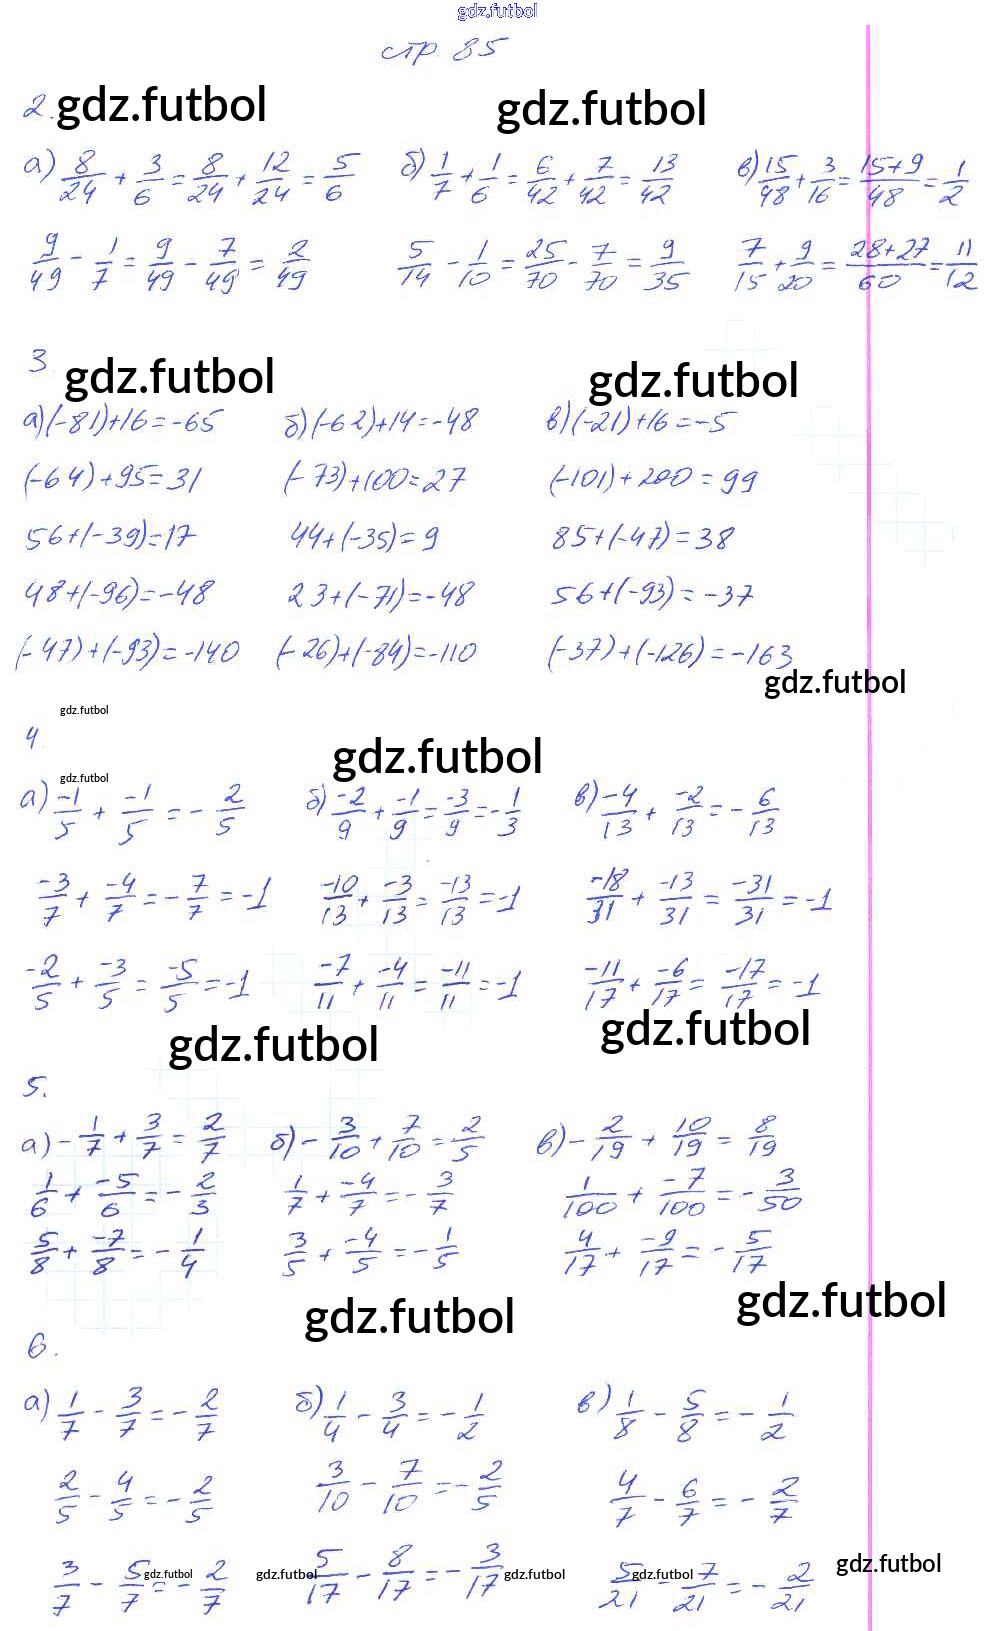 gdz.futbol
стр 85
2. gdz.futbol gdz.futbol
а) 8/24 + 3/6 = 8/24 + 12/24 = 5/6 б) 1/7 + 1/6 = 6/42 + 7/42 = 13/42 в) 15/48 + 3/16 = (15+9)/48 = 1/2
9/49 - 1/7 = 9/49 - 7/49 = 2/49 5/14 - 1/10 = 25/70 - 7/70 = 9/35 7/15 + 9/20 = (28+27)/60 = 11/12
3. gdz.futbol gdz.futbol
а) (-81)+16=-65 б) (-62)+14=-48 в) (-21)+16=-5
(-64)+95=31 (-73)+100=27 (-101)+200=99
56+(-39)=17 44+(-35)=9 85+(-47)=38
48+(-96)=-48 23+(-71)=-48 56+(-93)=-37
(-47)+(-93)=-140 (-26)+(-84)=-110 (-37)+(-126)=-163
gdz.futbol
gdz.futbol
4. gdz.futbol
gdz.futbol
а) -1/5 + -1/5 = - 2/5 б) -2/9 + -1/9 = -3/9 = - 1/3 в) -4/13 + -2/13 = - 6/13
-3/7 + -4/7 = - 7/7 = -1 -10/13 + -3/13 = -13/13 = -1 -18/31 + -13/31 = -31/31 = -1
-2/5 + -3/5 = -5/5 = -1 -7/11 + -4/11 = -11/11 = -1 -11/17 + -6/17 = -17/17 = -1
gdz.futbol gdz.futbol
5.
а) - 1/7 + 3/7 = 2/7 б) - 3/10 + 7/10 = 2/5 в) - 2/19 + 10/19 = 8/19
1/6 + -5/6 = - 2/3 1/7 + -4/7 = - 3/7 1/100 + -7/100 = - 3/50
5/8 + -7/8 = - 1/4 3/5 + -4/5 = - 1/5 4/17 + -9/17 = - 5/17
gdz.futbol gdz.futbol
6.
а) 1/7 - 3/7 = - 2/7 б) 1/4 - 3/4 = - 1/2 в) 1/8 - 5/8 = - 1/2
2/5 - 4/5 = - 2/5 3/10 - 7/10 = - 2/5 4/7 - 6/7 = - 2/7
3/7 - 5/7 = - 2/7 5/17 - 8/17 = - 3/17 5/21 - 7/21 = - 2/21
gdz.futbol gdz.futbol gdz.futbol gdz.futbol gdz.futbol